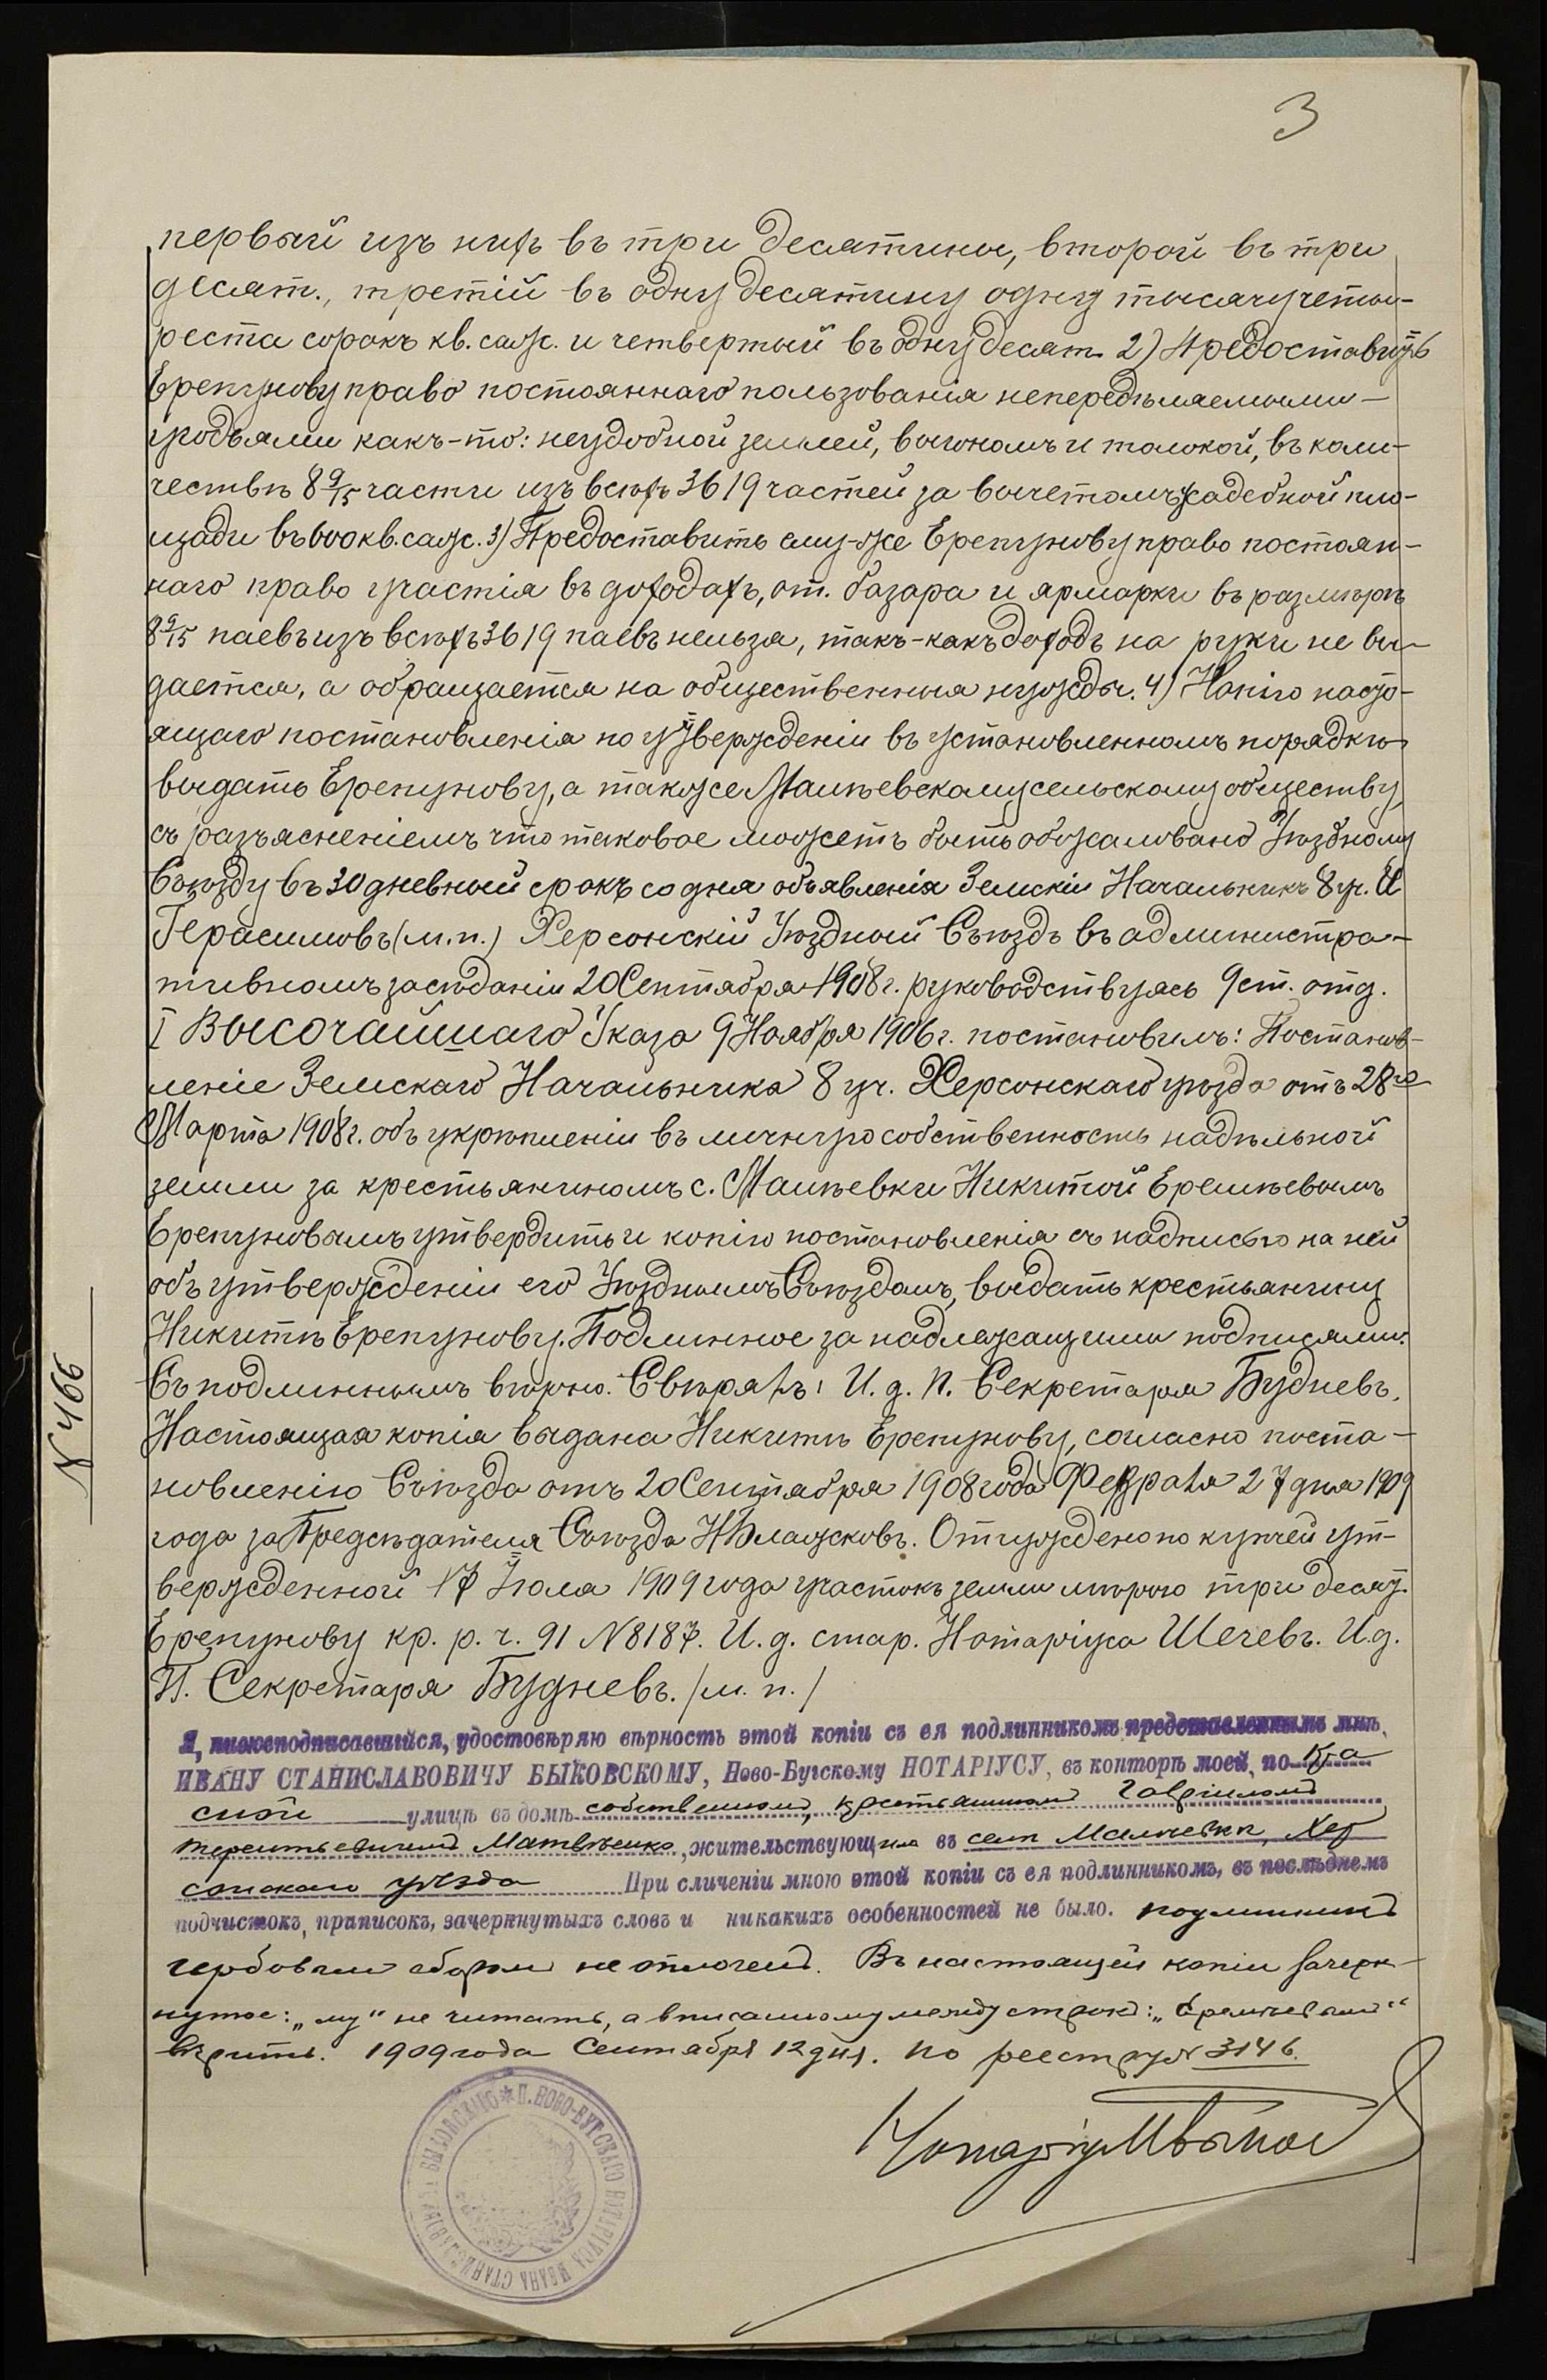 3
первый изъ нихъ въ три десятины, второй въ три
десят., третій въ одну десятину одну тысячу четы-
реста сорокъ кв. саж. и четвертый въ одну десят. 2) Предоставить
Ерепунову право постояннаго пользованія непередѣляемыми-
угодьями какъ-то: неудобной землей, выгономъ и толокой, въ коли-
чествѣ 8 9/15 части изъ всѣхъ 3619 частей за вычетомъ усадебной пло-
щади въ 600 кв. саж. 3) Предоставить ему-же Ерепунову право постоян-
наго право участія въ доходахъ, от. базара и ярмарки въ размѣрѣ
8 9/15 паевъ изъ всѣхъ 3619 паевъ нельзя, такъ-какъ доходъ на руки не вы-
дается, а обращается на общественныя нужды. 4) Копію насто-
ящаго постановленія по утвержденіи въ установленномъ порядкѣ
выдать Ерепунову, а также Малѣевскому сельскому обществу,
съ разъясненіемъ что таковое можетъ быть обжаловано Уѣздному
Съѣзду въ 30 дневный срокъ со дня объявленія Земскій Начальникъ 8 уч. И
Герасимовъ (м.п.) Херсонскій Уѣздный Съѣздъ въ администра-
тивномъ засѣданіи 20 Сентября 1908 г. руководствуясь 9 ст. отд.
I Высочайшаго Указа 9 Ноября 1906 г. постановилъ: Постанов-
леніе Земскаго Начальника 8 уч. Херсонскаго уѣзда отъ 28го
Марта 1908 г. объ укрѣпленіи въ личную собственность надѣльной
земли за крестьяниномъ с. Малѣевки Никитой Еремѣевымъ
Ерепуновымъ утвердить и копію постановленія съ надписью на ней
объ утвержденіи его Уѣзднымъ Съѣздомъ, выдать крестьянину
Никитѣ Ерепунову. Подлинное за надлежащими подписями.
Съ подлиннымъ вѣрно. Свѣрялъ: И. д. П. Секретаря Будневъ.
Настоящая копія выдана Никитѣ Ерепунову, согласно поста-
новленію Съѣзда отъ 20 Сентября 1908 года Февраля 27 дня 1909
года за Предсѣдателя Съѣзда Отчуждено по купчей ут-
вержденной 17 Іюля 1909 года участокъ земли мѣрою три десят.
Ерепунову кр. р. ч. 91 N 8187. И. д. стар. Нотаріуса Шечевъ. И.д.
П. Секретаря Будневъ. /м. п./
N 466
Я, нижеподписавшійся, удостовѣряю вѣрность этой копіи съ ея подлинникомъ представленнымъ мнѣ,
ИВАНУ СТАНИСЛАВОВИЧУ БЫКОВСКОМУ, Ново-Бугскому НОТАРІУСУ, въ конторѣ моей, по
улицѣ въ домѣ собственномъ, крестьяниномъ Гавріиломъ
Терентьевичемъ Матвѣенко, жительствующимъ въ селѣ Малѣевкѣ, Хер
сонскаго уѣзда При сличеніи мною этой копіи съ ея подлинникомъ, въ послѣднемъ
подчистокъ, приписокъ, зачеркнутыхъ словъ и никакихъ особенностей не было. подлинникъ
гербовымъ сборомъ не оплоченъ. Въ настоящей копіи зачерк-
нутое: „му" не читать, а вписанному между строкъ: „Еремѣевымъ"
вѣрить. 1909 года Сентября 12 дня. По реестру N 3146.
Нотаріусъ
П. НОВО-БУГСКАГО НОТАРІУСА ИВАНА СТАНИСЛАВОВИЧА БЫКОВСКАГО